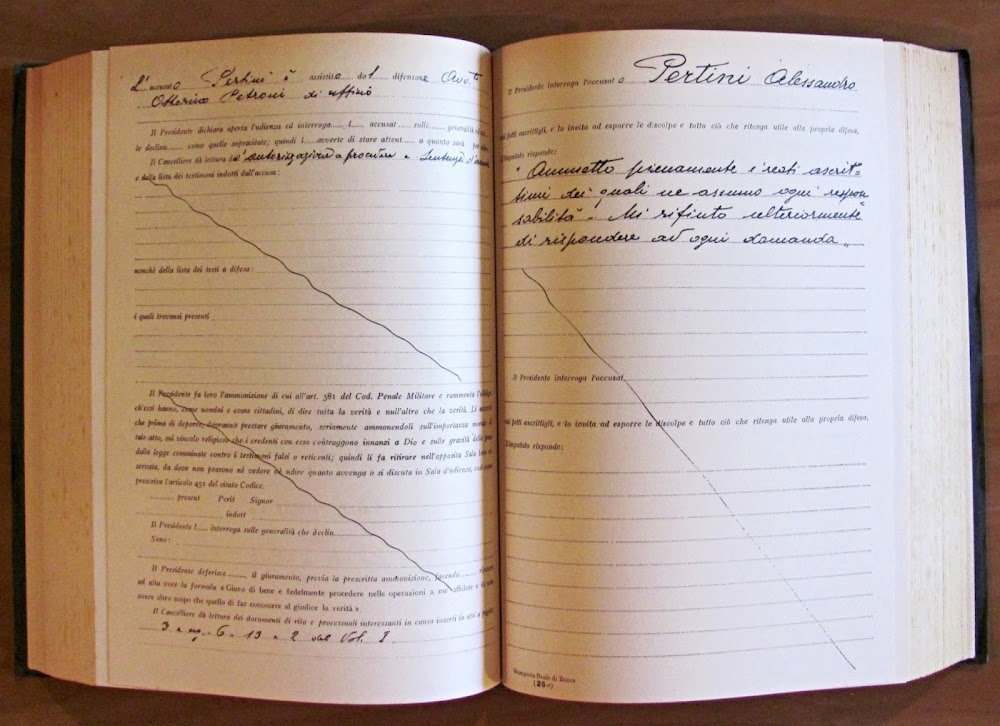 L'accusato Pertini è assistito da l difensore Avv.
Otterino Petroni di ufficio
Il Presidente dichiara aperta l'udienza ed interroga l accusat sulle generalità
le declina come quelle sopracitate, quindi l avverte di stare attent a quanto sarà per
Il Cancelliere dà lettura dell'autorizzazione a procedere e Sentenza d'
e della lista dei testimoni indotti dall'accusa:
nonché della lista dei testi a difesa:
i quali trovansi presenti
Il Presidente fa loro l'ammonizione di cui all'art. 381 del Cod. Penale Militare e rammenta
ch'essi hanno, come uomini e come cittadini, di dire tutta la verità e null'altro che la verità. Li
che prima di deporre, dovranno prestare giuramento, seriamente ammonendoli sull'importanza morale
tale atto, sul vincolo religioso che i credenti con esso contraggono innanzi a Dio e sulle gravità delle pene
dalla legge comminate contro i testimoni falsi o reticenti; quindi li fa ritirare nell'apposita Sala
servata, da dove non possono nè vedere nè udire quanto avvenga o si discuta in Sala d'udienza,
prescrive l'articolo 451 del citato Codice.
present Perit Signor
indott
Il Presidente l interroga sulle generalità che declin
Sono:
Il Presidente deferisce il giuramento, previa la prescritta ammonizione, facendo
ad alta voce la formula «Giuro di bene e fedelmente procedere nelle operazioni a me affidate e di non
avere altro scopo che quello di far conoscere al giudice la verità».
Il Cancelliere dà lettura dei documenti di rito e processuali interessanti in causa inserti in atti a pagine
3 6 - 13 e 2 del Vol. I.
Il Presidente interroga l'accusato Pertini Alessandro
sui fatti ascrittigli, e lo invita ad esporre le discolpe e tutto ciò che ritenga utile alla propria difesa,
L'imputato risponde:
"Ammetto pienamente i reati ascrit-
timi dei quali ne assumo ogni respon-
sabilità". Mi rifiuto ulteriormente
di rispondere ad ogni domanda"
Il Presidente interroga l'accusat
sui fatti ascrittigli, e lo invita ad esporre le discolpe e tutto ciò che ritenga utile alla propria difesa,
L'imputato risponde:
Stamperia Reale di Roma
(28-)